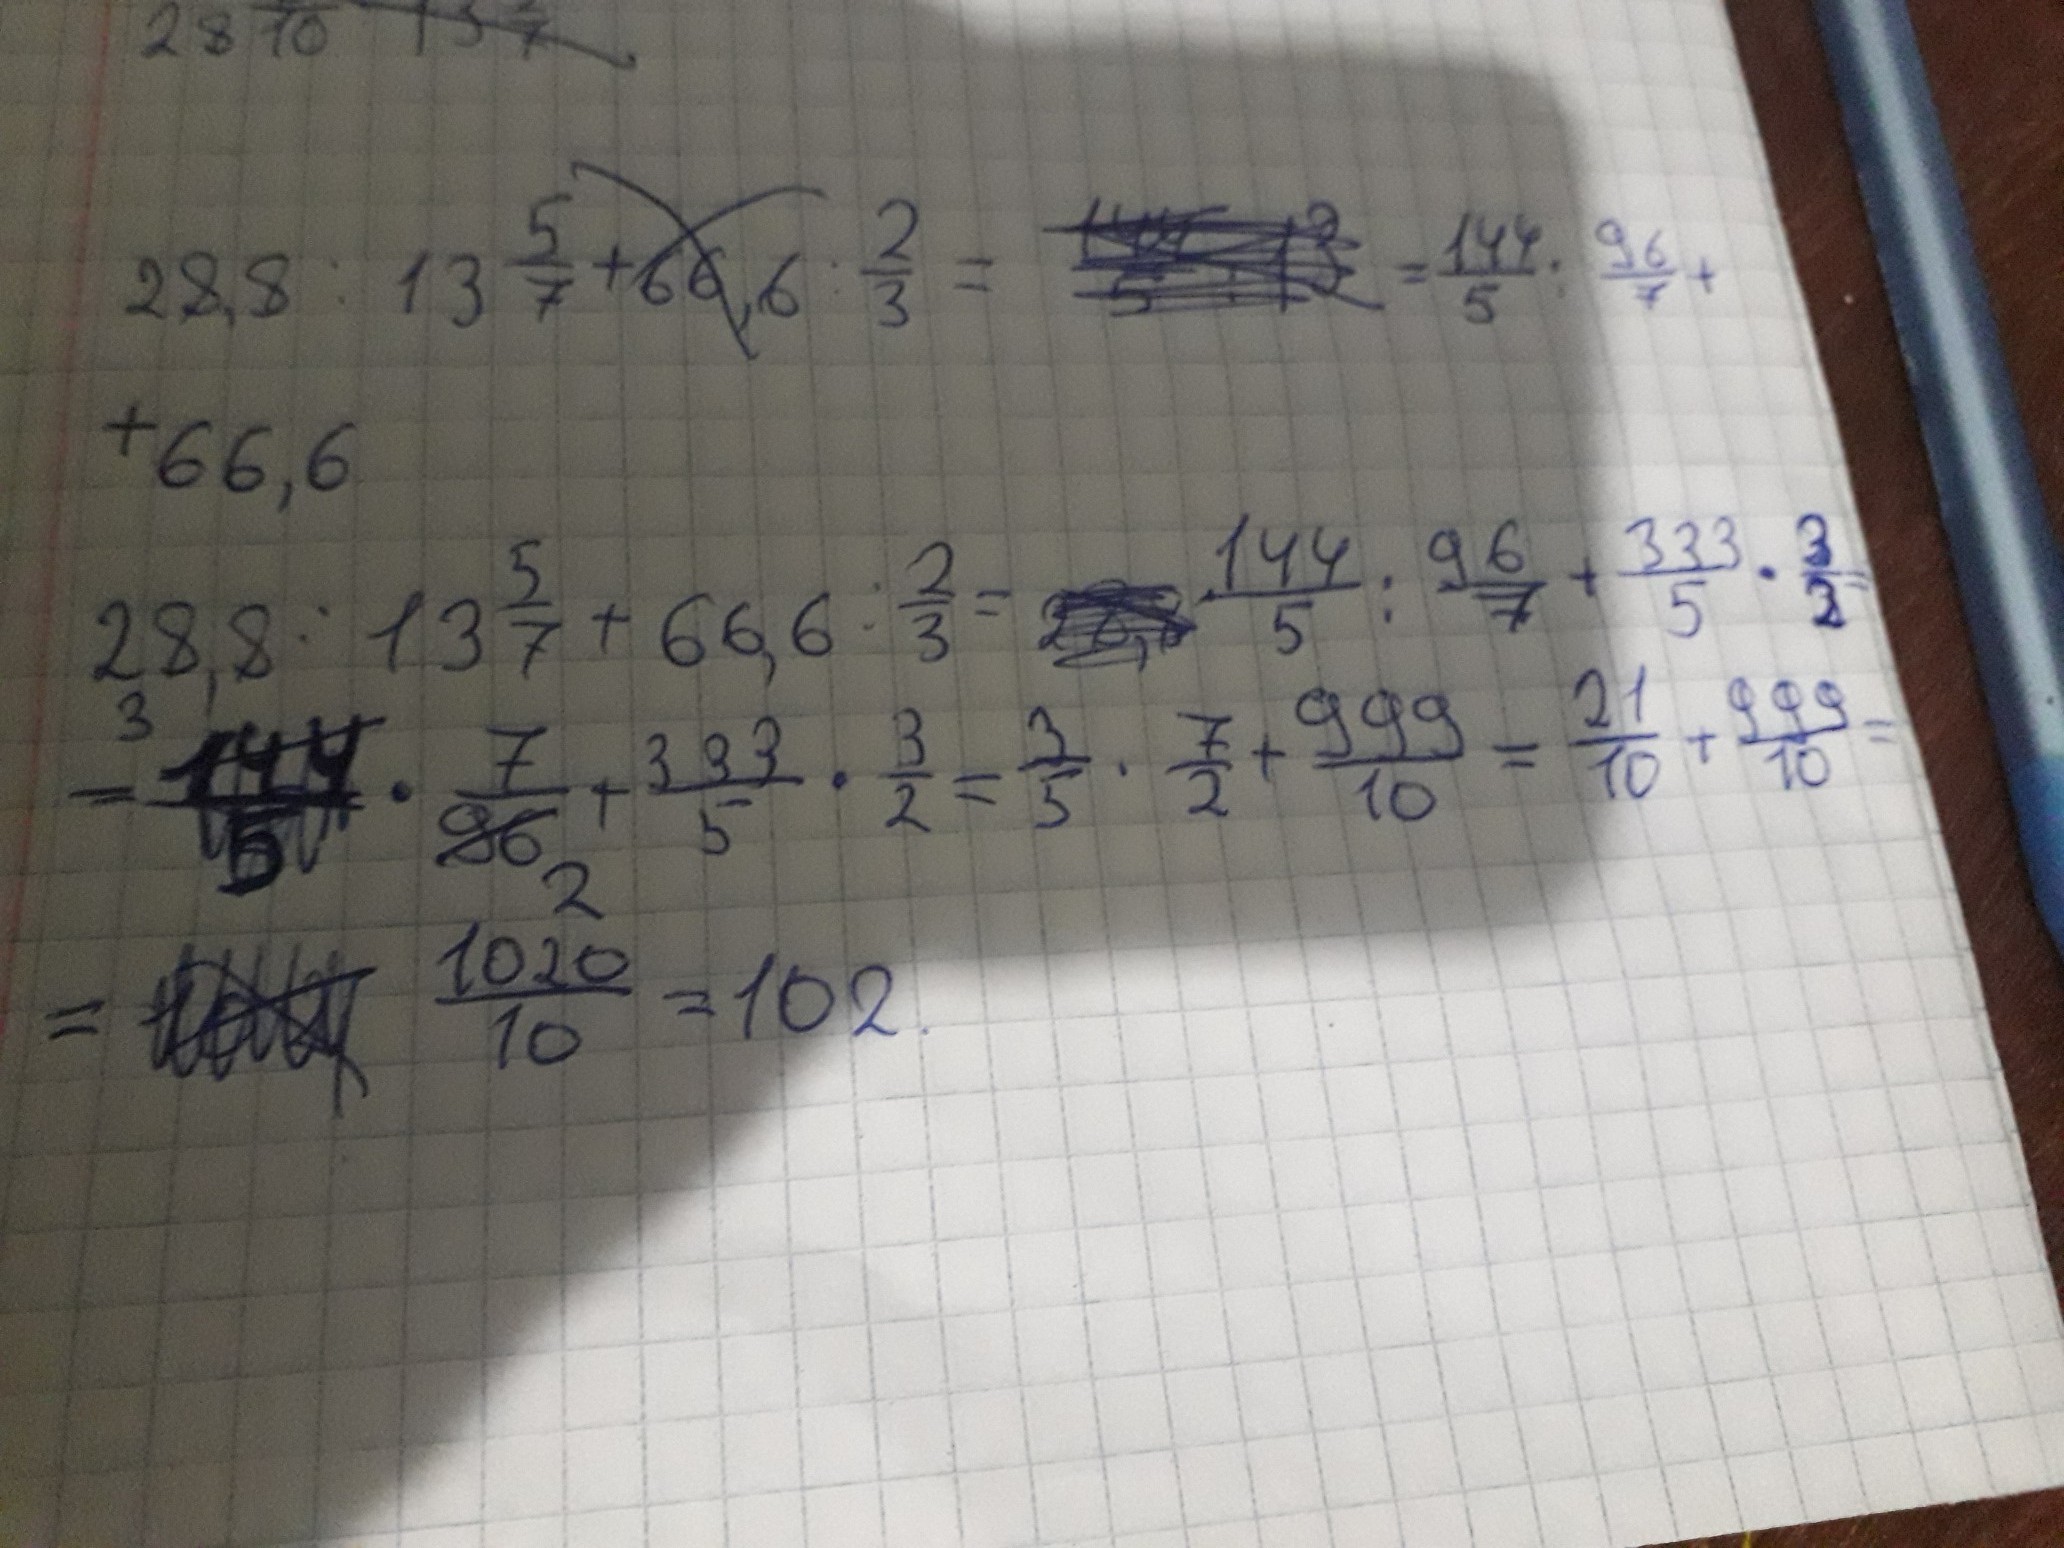 28 10 13 7
28,8 : 13 5/7 + 66,6 : 2/3 = = 144/5 : 96/7 +
+66,6
28,8 : 13 5/7 + 66,6 : 2/3 = 144/5 : 96/7 + 333/5 · 3/2 =
3
= 144/5 · 7/96 + 333/5 · 3/2 = 3/5 · 7/2 + 999/10 = 21/10 + 999/10 =
2
= 1020/10 = 102.